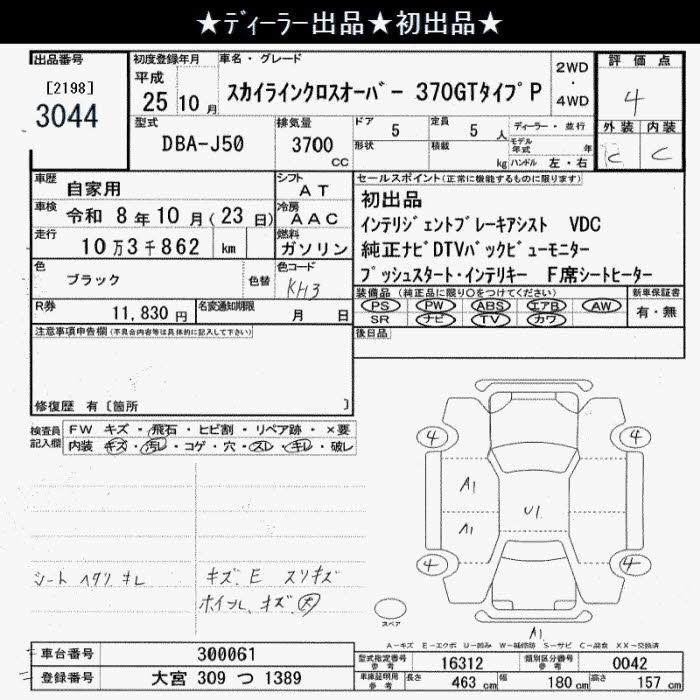 ★ﾃﾞｨｰﾗｰ出品★初出品★
出品番号
[2198]
3044
初度登録年月
平成
25 10 月
車名・グレード
スカイラインクロスオーバー 370GTタイプP
2WD
・
4WD
評価点
4
外装 内装
C C
型式
DBA-J50
排気量
3700
CC
ドア 5
形状
定員 5 人
積載 kg
ディーラー・並行
モデル年式 年
ハンドル 左・右
車歴 自家用
車検 令和 8年10月(23日)
走行 10万3千862 km
シフト AT
冷房 AAC
燃料 ガソリン
色 ブラック
色替
色コード KH3
R券 11,830 円
名変通知期限 月 日
セールスポイント(正常に機能するものに限ります)
初出品
インテリジェントブレーキアシスト VDC
純正ナビDTVバックビューモニター
プッシュスタート・インテリキー F席シートヒーター
装備品(純正品に限り○をつけてください)
PS PW ABS エアB AW
SR ナビ TV カワ
新車保証書
有・無
後日品
注意事項申告欄(不具合内容等は具体的に記入して下さい)
修復歴 有 [箇所 ]
検査員記入欄
FW キズ・飛石・ヒビ割・リペア跡・×要
内装 キズ・汚レ・コゲ・穴・スレ・キレ・破レ
シート ヘタリ キレ
キズ、E スリキズ
ホイール キズ 大
4
4
A1
A1
U1
4
4
スペア
A1
A-キズ E-エクボ U-凹み W-補修跡 S-サビ C-腐食 XX-交換済
車台番号 300061
登録番号 大宮 309 つ 1389
型式指定番号参考 16312
類別区分番号参考 0042
車庫証明用参考 長さ 463 cm 幅 180 cm 高さ 157 cm